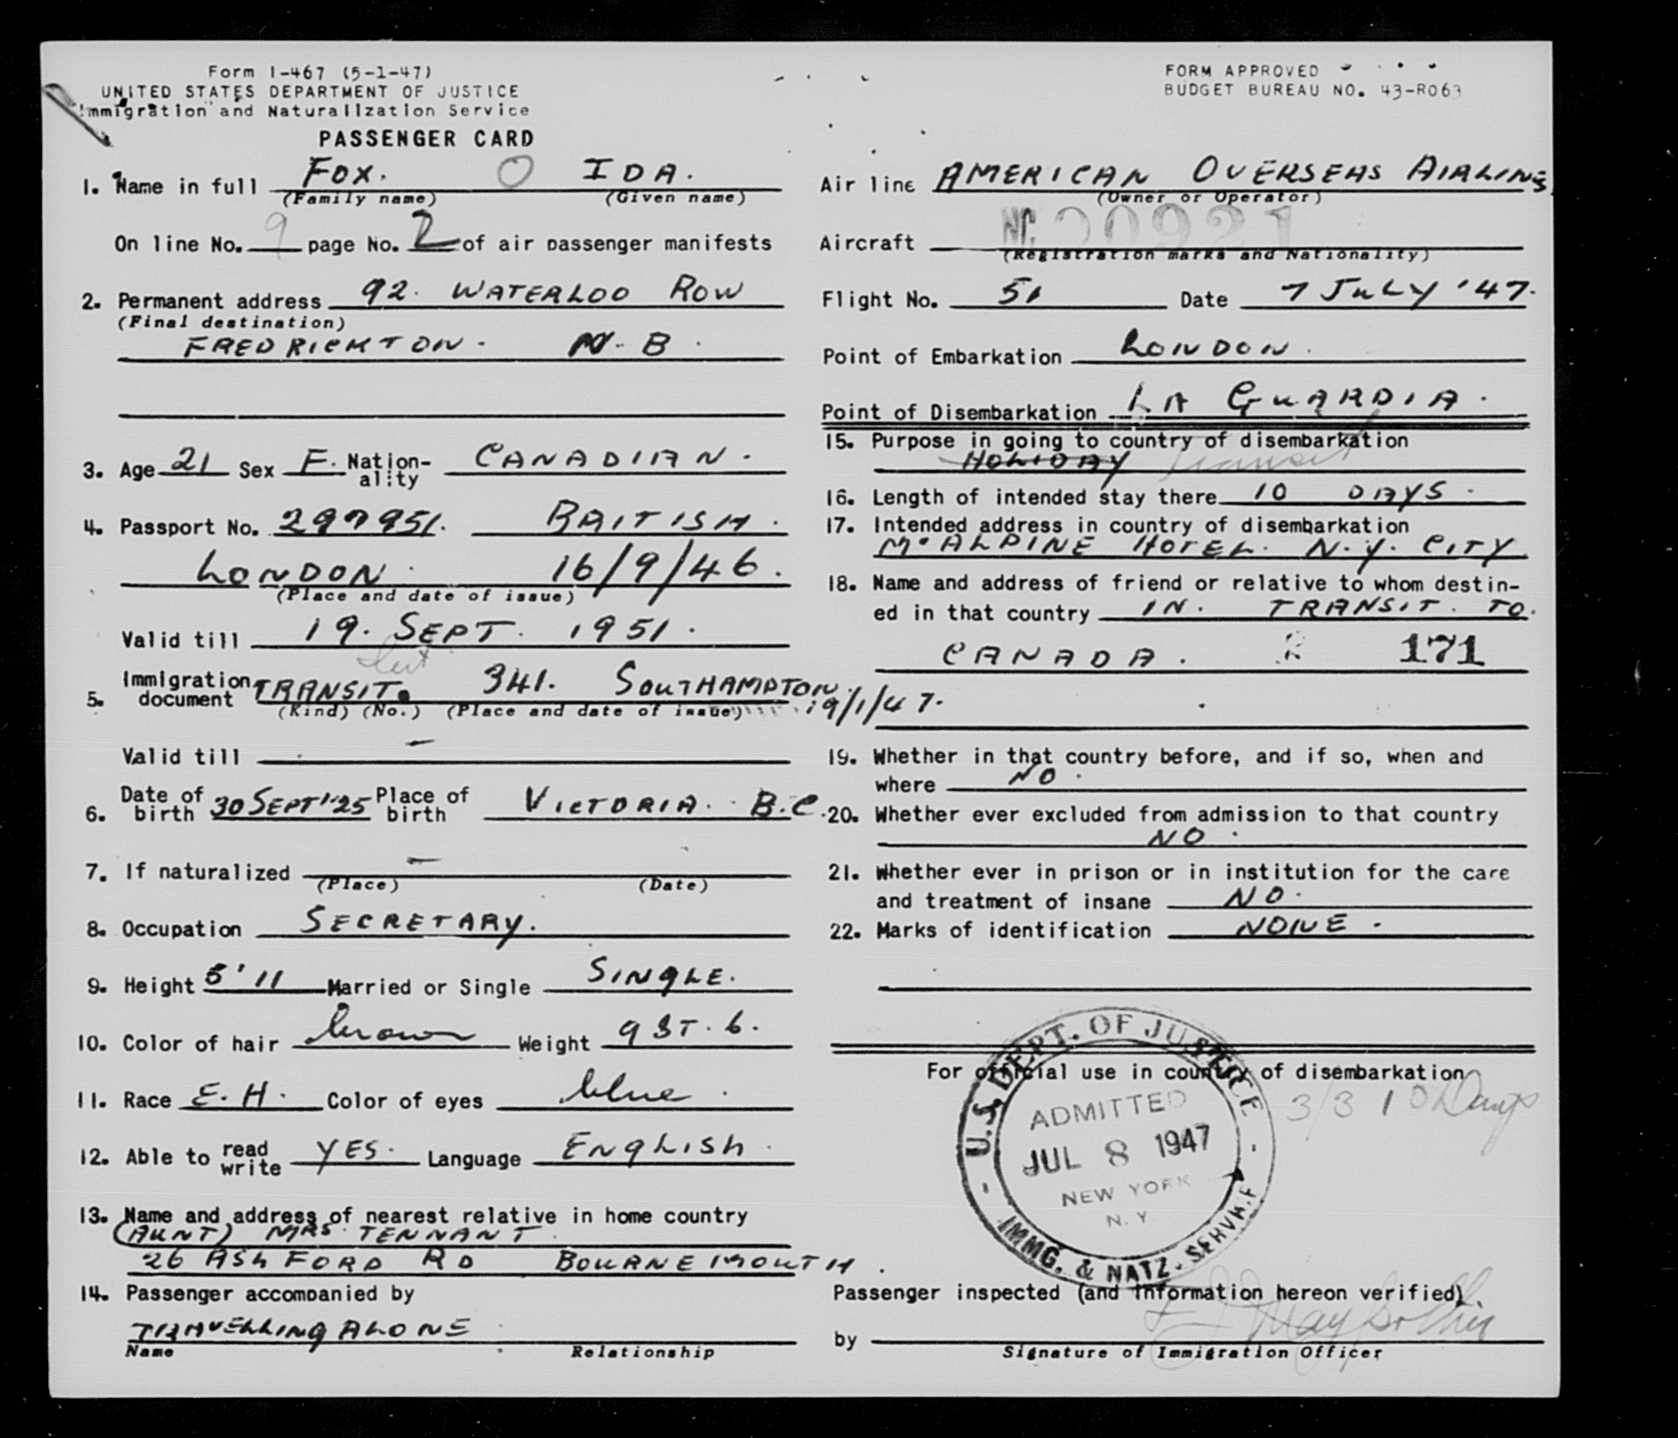 Form I-467 (5-1-47)
UNITED STATES DEPARTMENT OF JUSTICE
Immigration and Naturalization Service
PASSENGER CARD
1. Name in full FOX. O IDA.
(Family name) (Given name)
On line No. 9 page No. 2 of air passenger manifests
2. Permanent address 92. WATERLOO ROW
(Final destination)
FREDRICKTON. N.B.
3. Age 21 Sex F. Nation-ality CANADIAN.
4. Passport No. 297951. BRITISH.
LONDON. 16/9/46.
(Place and date of issue)
Valid till 19. SEPT. 1951.
5. Immigration document TRANSIT. 341. SOUTHAMPTON. 19/1/47.
(Kind) (No.) (Place and date of issue)
Valid till —
6. Date of birth 30 SEPT '25 Place of birth VICTORIA. B.C.
7. If naturalized —
(Place) (Date)
8. Occupation SECRETARY.
9. Height 5'11 Married or Single SINGLE.
10. Color of hair brown Weight 9 ST. 6.
11. Race E.H. Color of eyes blue.
12. Able to read write YES. Language ENGLISH.
13. Name and address of nearest relative in home country
(AUNT) MRS. TENNANT.
26 ASHFORD RD BOURNEMOUTH.
14. Passenger accompanied by
TRAVELLING ALONE
Name Relationship
FORM APPROVED
BUDGET BUREAU NO. 43-R063
Air line AMERICAN OVERSEAS AIRLINES
(Owner or Operator)
Aircraft NC 90921
(Registration marks and Nationality)
Flight No. 51 Date 7 JULY '47.
Point of Embarkation LONDON.
Point of Disembarkation LA GUARDIA.
15. Purpose in going to country of disembarkation
HOLIDAY Transit
16. Length of intended stay there 10 DAYS.
17. Intended address in country of disembarkation
McALPINE HOTEL. N.Y. CITY
18. Name and address of friend or relative to whom destin-
ed in that country IN. TRANSIT. TO.
CANADA. 171
19. Whether in that country before, and if so, when and
where NO.
20. Whether ever excluded from admission to that country
NO.
21. Whether ever in prison or in institution for the care
and treatment of insane NO.
22. Marks of identification NONE.
For official use in country of disembarkation
3/3 10 Days
U.S. DEPT. OF JUSTICE
ADMITTED
JUL 8 1947
NEW YORK
N.Y.
IMMG. & NATZ. SERV.
Passenger inspected (and information hereon verified)
by
Signature of Immigration Officer